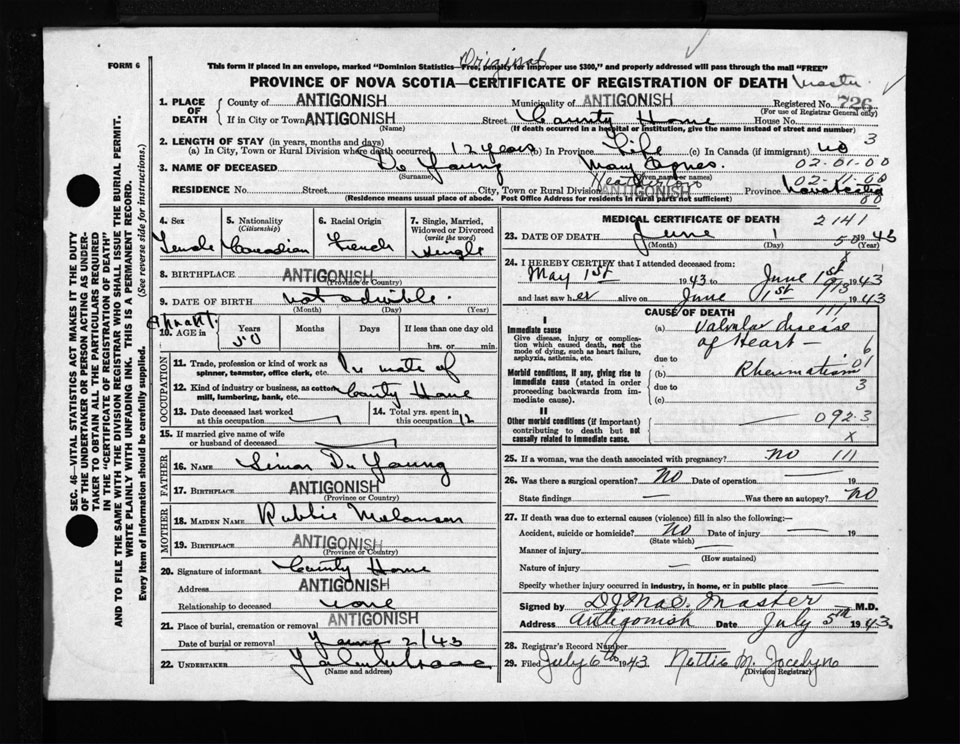 Original
FORM 6
This form if placed in an envelope, marked "Dominion Statistics—Free, penalty for improper use $300," and properly addressed will pass through the mail "FREE"
PROVINCE OF NOVA SCOTIA—CERTIFICATE OF REGISTRATION OF DEATH
1. PLACE OF DEATH { County of ANTIGONISH Municipality of ANTIGONISH Registered No. 726
(For use of Registrar General only)
If in City or Town ANTIGONISH Street County Home House No.
(Name) (If death occurred in a hospital or institution, give the name instead of street and number)
2. LENGTH OF STAY (in years, months and days) 3
(a) In City, Town or Rural Division where death occurred 12 years (b) In Province Life (c) In Canada (if immigrant) no
3. NAME OF DECEASED De Young Mary Agnes. 02-01-00
(Surname) (Given name or names) 02-11-00
RESIDENCE No. Street City, Town or Rural Division ANTIGONISH Province Nova Scotia
(Residence means usual place of abode. Post Office Address for residents in rural parts not sufficient) 00
4. Sex Female
5. Nationality (Citizenship) Canadian
6. Racial Origin French
7. Single, Married, Widowed or Divorced (write the word) Single
8. BIRTHPLACE ANTIGONISH
(Province or Country)
9. DATE OF BIRTH
(Month) (Day) (Year)
10. AGE in Years Months Days If less than one day
50 hrs. or min.
OCCUPATION
11. Trade, profession or kind of work as spinner, teamster, office clerk, etc. In mate of
12. Kind of industry or business, as cotton mill, lumbering, bank, etc. County Home
13. Date deceased last worked at this occupation
14. Total yrs. spent in this occupation 12
15. If married give name of wife or husband of deceased
FATHER
16. NAME Simon De Young
17. BIRTHPLACE ANTIGONISH
(Province or Country)
MOTHER
18. MAIDEN NAME Melanson
19. BIRTHPLACE ANTIGONISH
(Province or Country)
20. Signature of informant County Home
Address ANTIGONISH
Relationship to deceased none
21. Place of burial, cremation or removal ANTIGONISH
Date of burial or removal 2/43
22. UNDERTAKER
(Name and address)
MEDICAL CERTIFICATE OF DEATH 2141
23. DATE OF DEATH June 1 1943
(Month) (Day) (Year)
24. I HEREBY CERTIFY that I attended deceased from:
May 1st 1943 to June 1st 1943
and last saw her alive on June 1st 1943
CAUSE OF DEATH
I
Immediate cause
Give disease, injury or complication which caused death, not the mode of dying, such as heart failure, asphyxia, asthenia, etc.
(a) Valvular disease of Heart —
due to
Morbid conditions, if any, giving rise to immediate cause (stated in order proceeding backwards from immediate cause).
(b) Rheumatism
due to
(c)
II
Other morbid conditions (if important) contributing to death but not causally related to immediate cause.
092-3
x
25. If a woman, was the death associated with pregnancy? no 111
26. Was there a surgical operation? no Date of operation — 19
State findings — Was there an autopsy? no
27. If death was due to external causes (violence) fill in also the following:—
Accident, suicide or homicide? no Date of injury — 19
(State which)
Manner of injury —
(How sustained)
Nature of injury —
Specify whether injury occurred in industry, in home, or in public place —
Signed by D J Mac Master M.D.
Address Antigonish Date July 5th 1943.
28. Registrar's Record Number
29. Filed July 6th 1943 Nettie M. Jocelyn
(Division Registrar)
SEC. 46 VITAL STATISTICS ACT MAKES IT THE DUTY
OF THE UNDERTAKER OR PERSON ACTING AS UNDERTAKER TO OBTAIN ALL THE PARTICULARS REQUIRED
IN THE "CERTIFICATE OF REGISTRATION OF DEATH"
AND TO FILE THE SAME WITH THE DIVISION REGISTRAR WHO SHALL ISSUE THE BURIAL PERMIT.
WRITE PLAINLY WITH UNFADING INK. THIS IS A PERMANENT RECORD.
Every item of information should be carefully supplied. (See reverse side for instructions.)